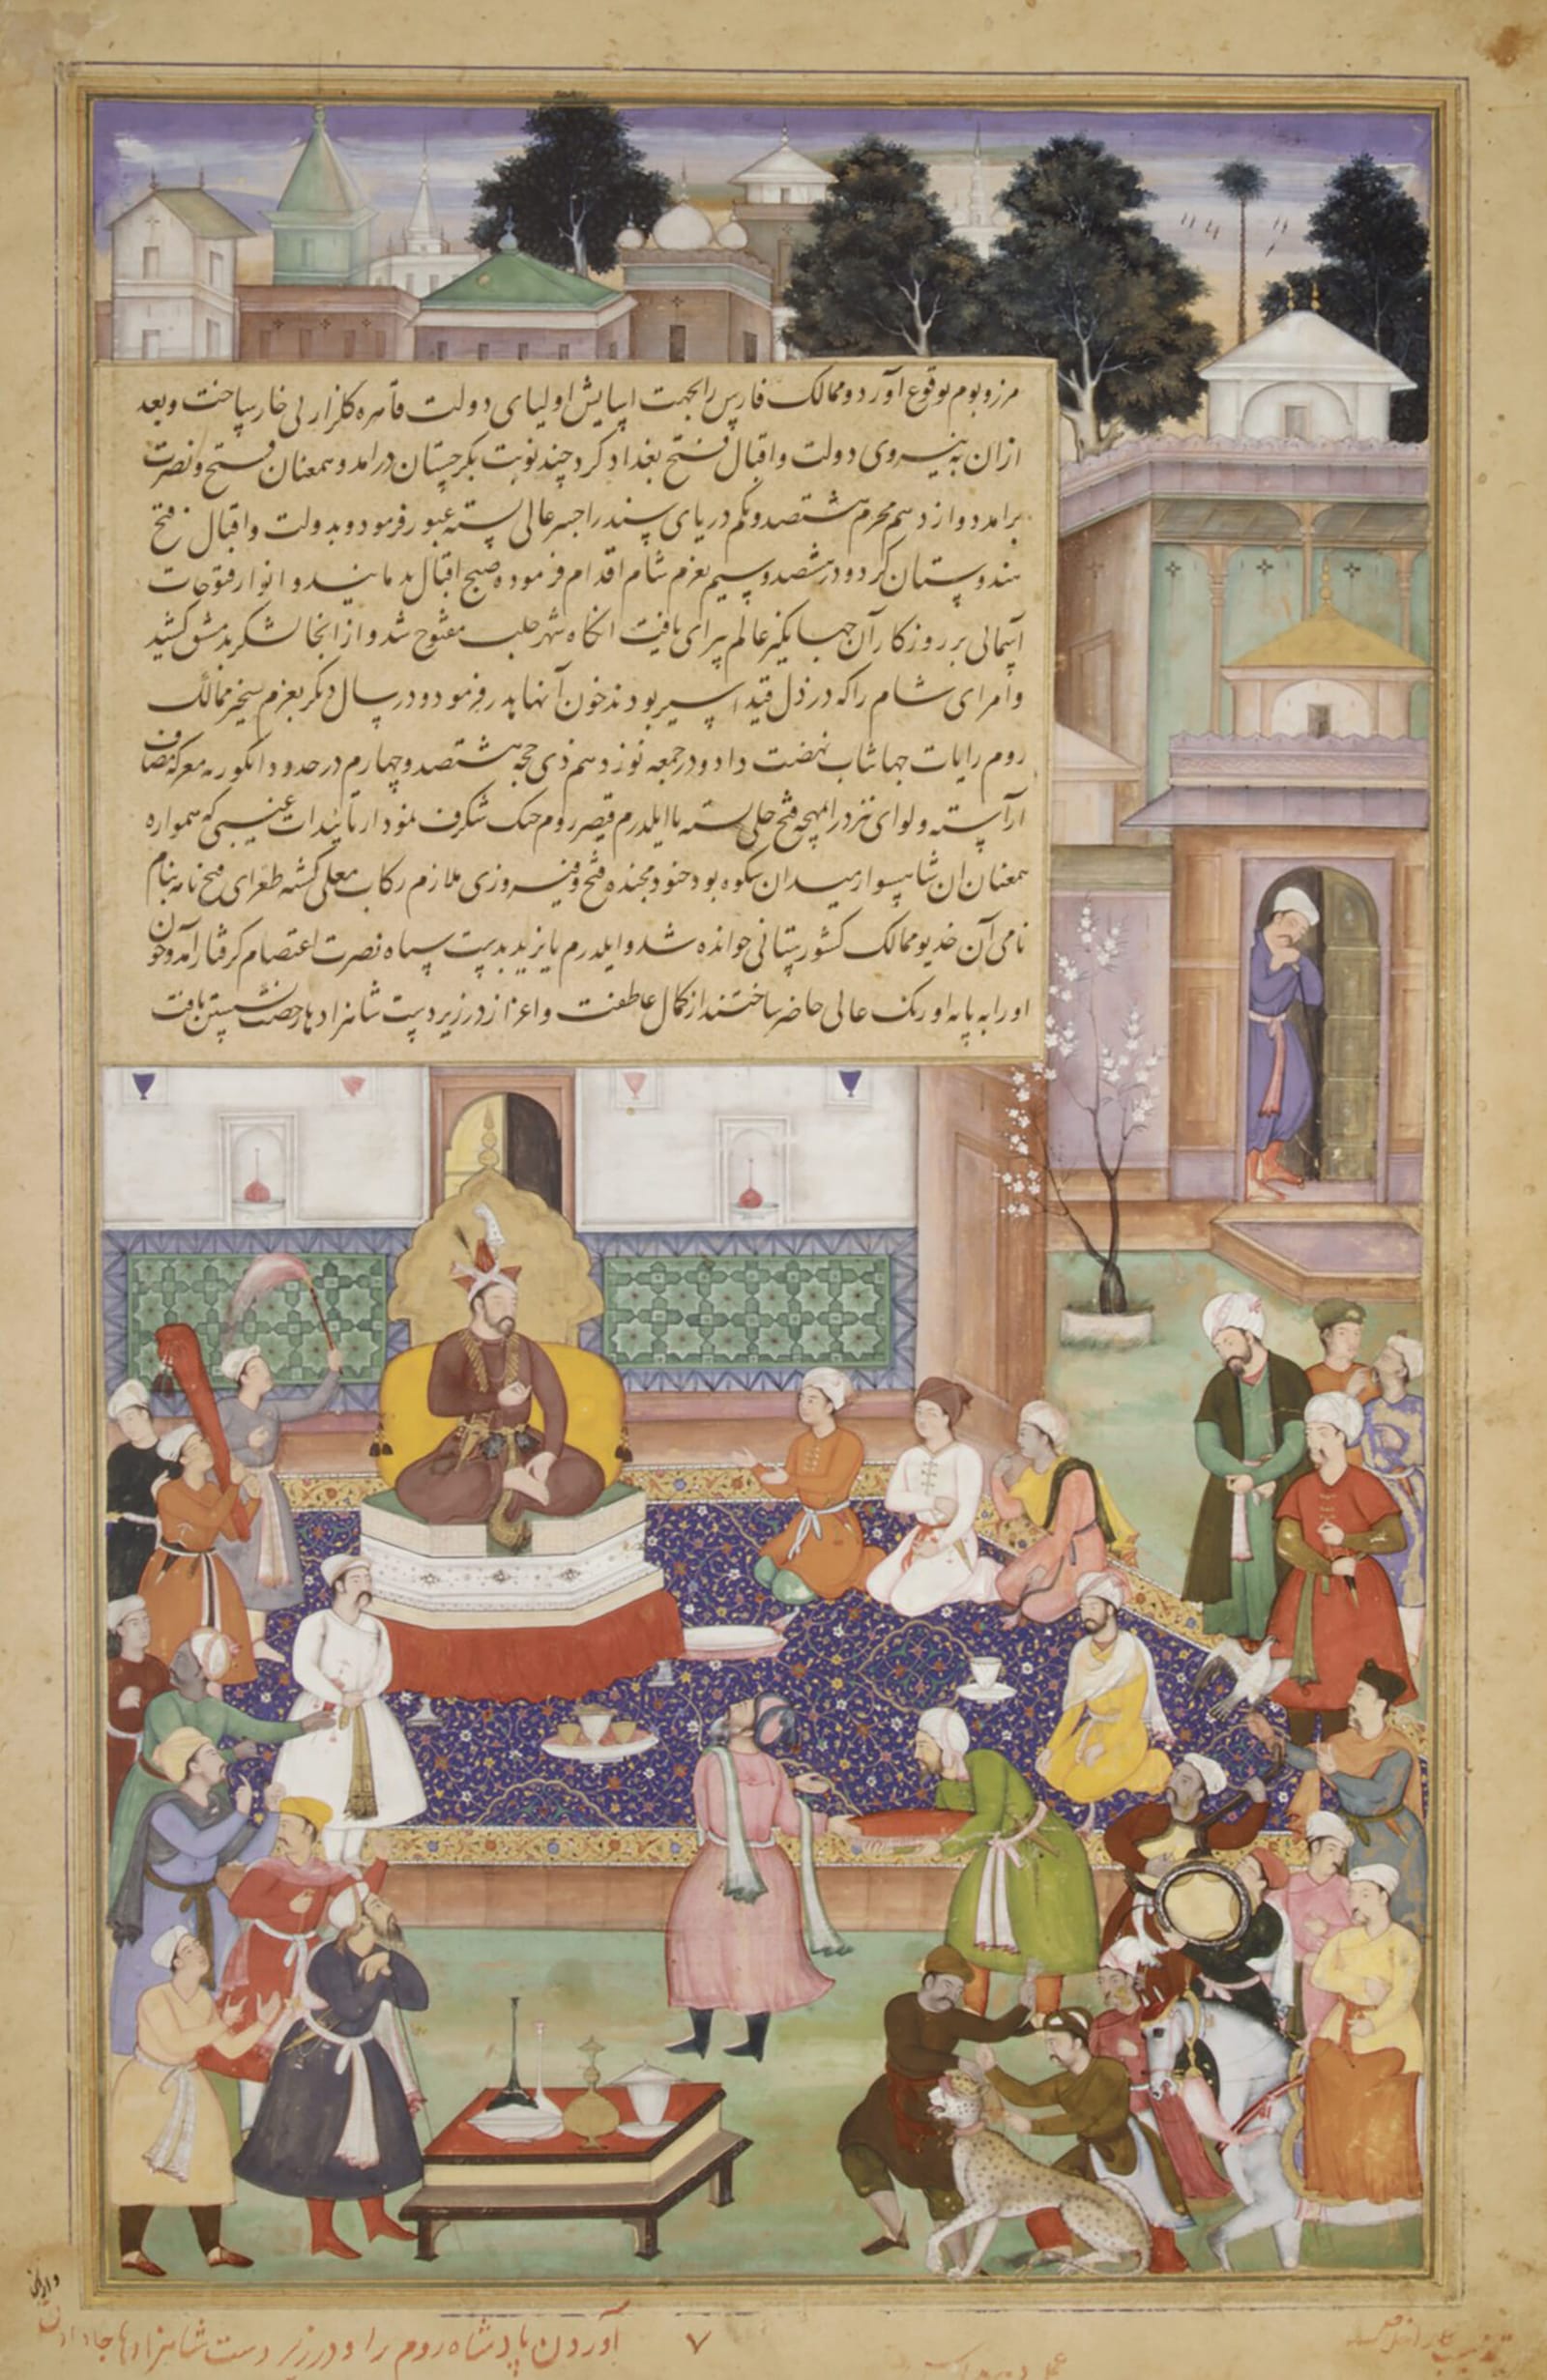 مرزوبوم بوقوع آورد و ممالک فارس را بجهت اسایش اولیای دولت قاهره کلزار بی خار ساخت و بعد
ازان به نیروی دولت و اقبال فتح بغداد کرد چند نوبت بکرجستان درامد و همعنان فتح و نصرت
برامد دوازدهم محرم هشتصد و یکم دریای سند را جسر عالی بسته عبور فرمود و بدولت و اقبال فتح
هندوستان کرد و در هشتصد و سیم بعزم شام اقدام فرموده صبح اقبال بدمانیند و انوار فتوحات
آسمانی بر روزکار آن جهانکیر عالم پیرای یافت انکاه شهر حلب مفتوح شد و از انجا لشکر بدمشق کشید
و امرای شام را که در ذل قید اسیر بودند خون آنها هدر فرمود و در سال دیکر بعزم تسخیر ممالک
روم رایات جهانتاب نهضت داد و در جمعه نوزدهم ذی حجه هشتصد و چهارم در حدود انکوریه معرکه مصاف
آراسته و لوای بسته با ایلدرم قیصر روم جنک شکرف نمود از تائیدات غیبی که همواره
همعنان ان شاهسوار میدان شکوه بود جنود مجنده فتح و فیروزی ملازم رکاب معلی کشته طغرای فتح نامه بنام
نامی آن خدیو ممالک کشورستانی خوانده شد و ایلدرم بایزید بدست سپاه نصرت اعتصام کرفتار آمد و چون
او را به پایه اورنک عالی حاضر ساختند از کمال عاطفت و اعزاز در زیر دست شاهزادها رخصت نشستن یافت
آوردن پادشاه روم را و در زیر دست شاهزادها جا دادن
۷
عمل